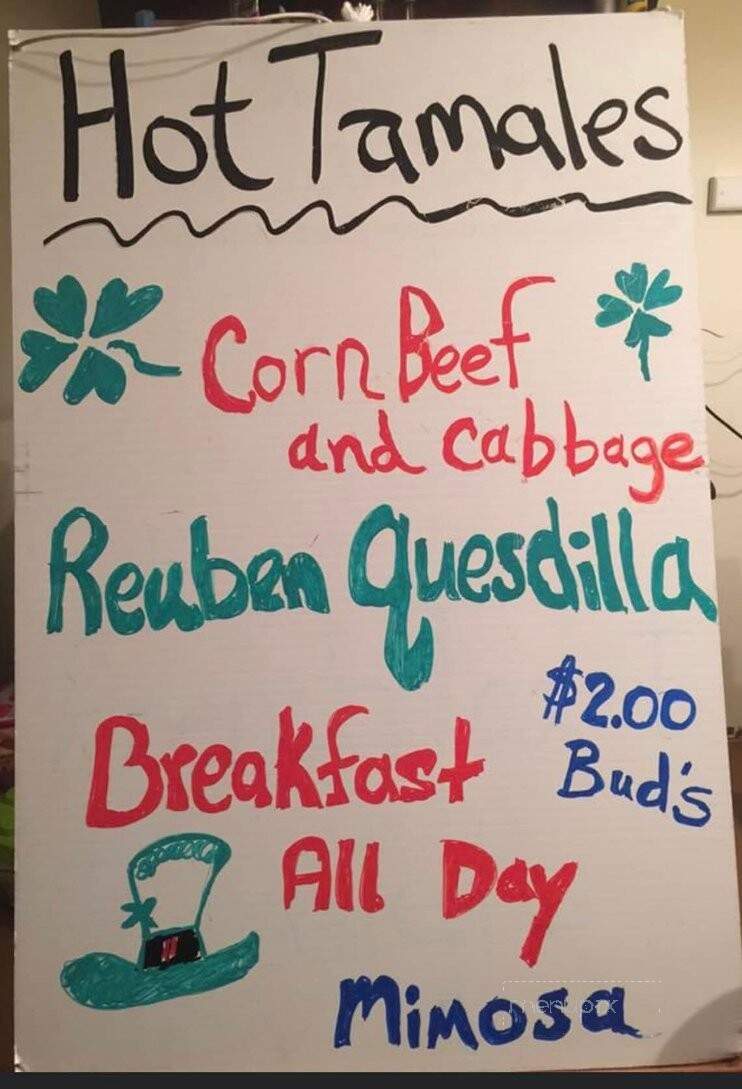 Hot Tamales
Corn Beef
and cabbage
Reuben Quesdilla
$2.00
Bud's
Breakfast
All Day
Mimosa
menupix